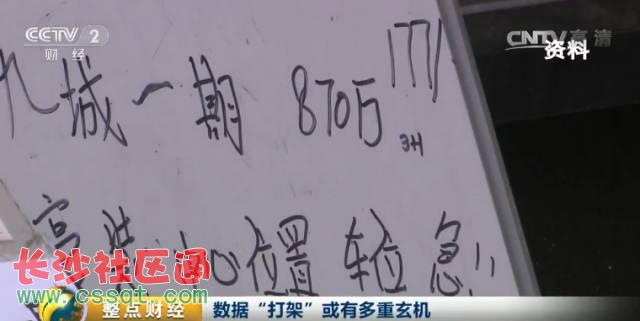 CCTV 2
财经
CNTV高清
资料
九城一期 870万 1771
3H
豪装 中心位置 车位 急!!
长沙社区通
www.cssqt.com
整点财经
数据“打架”或有多重玄机